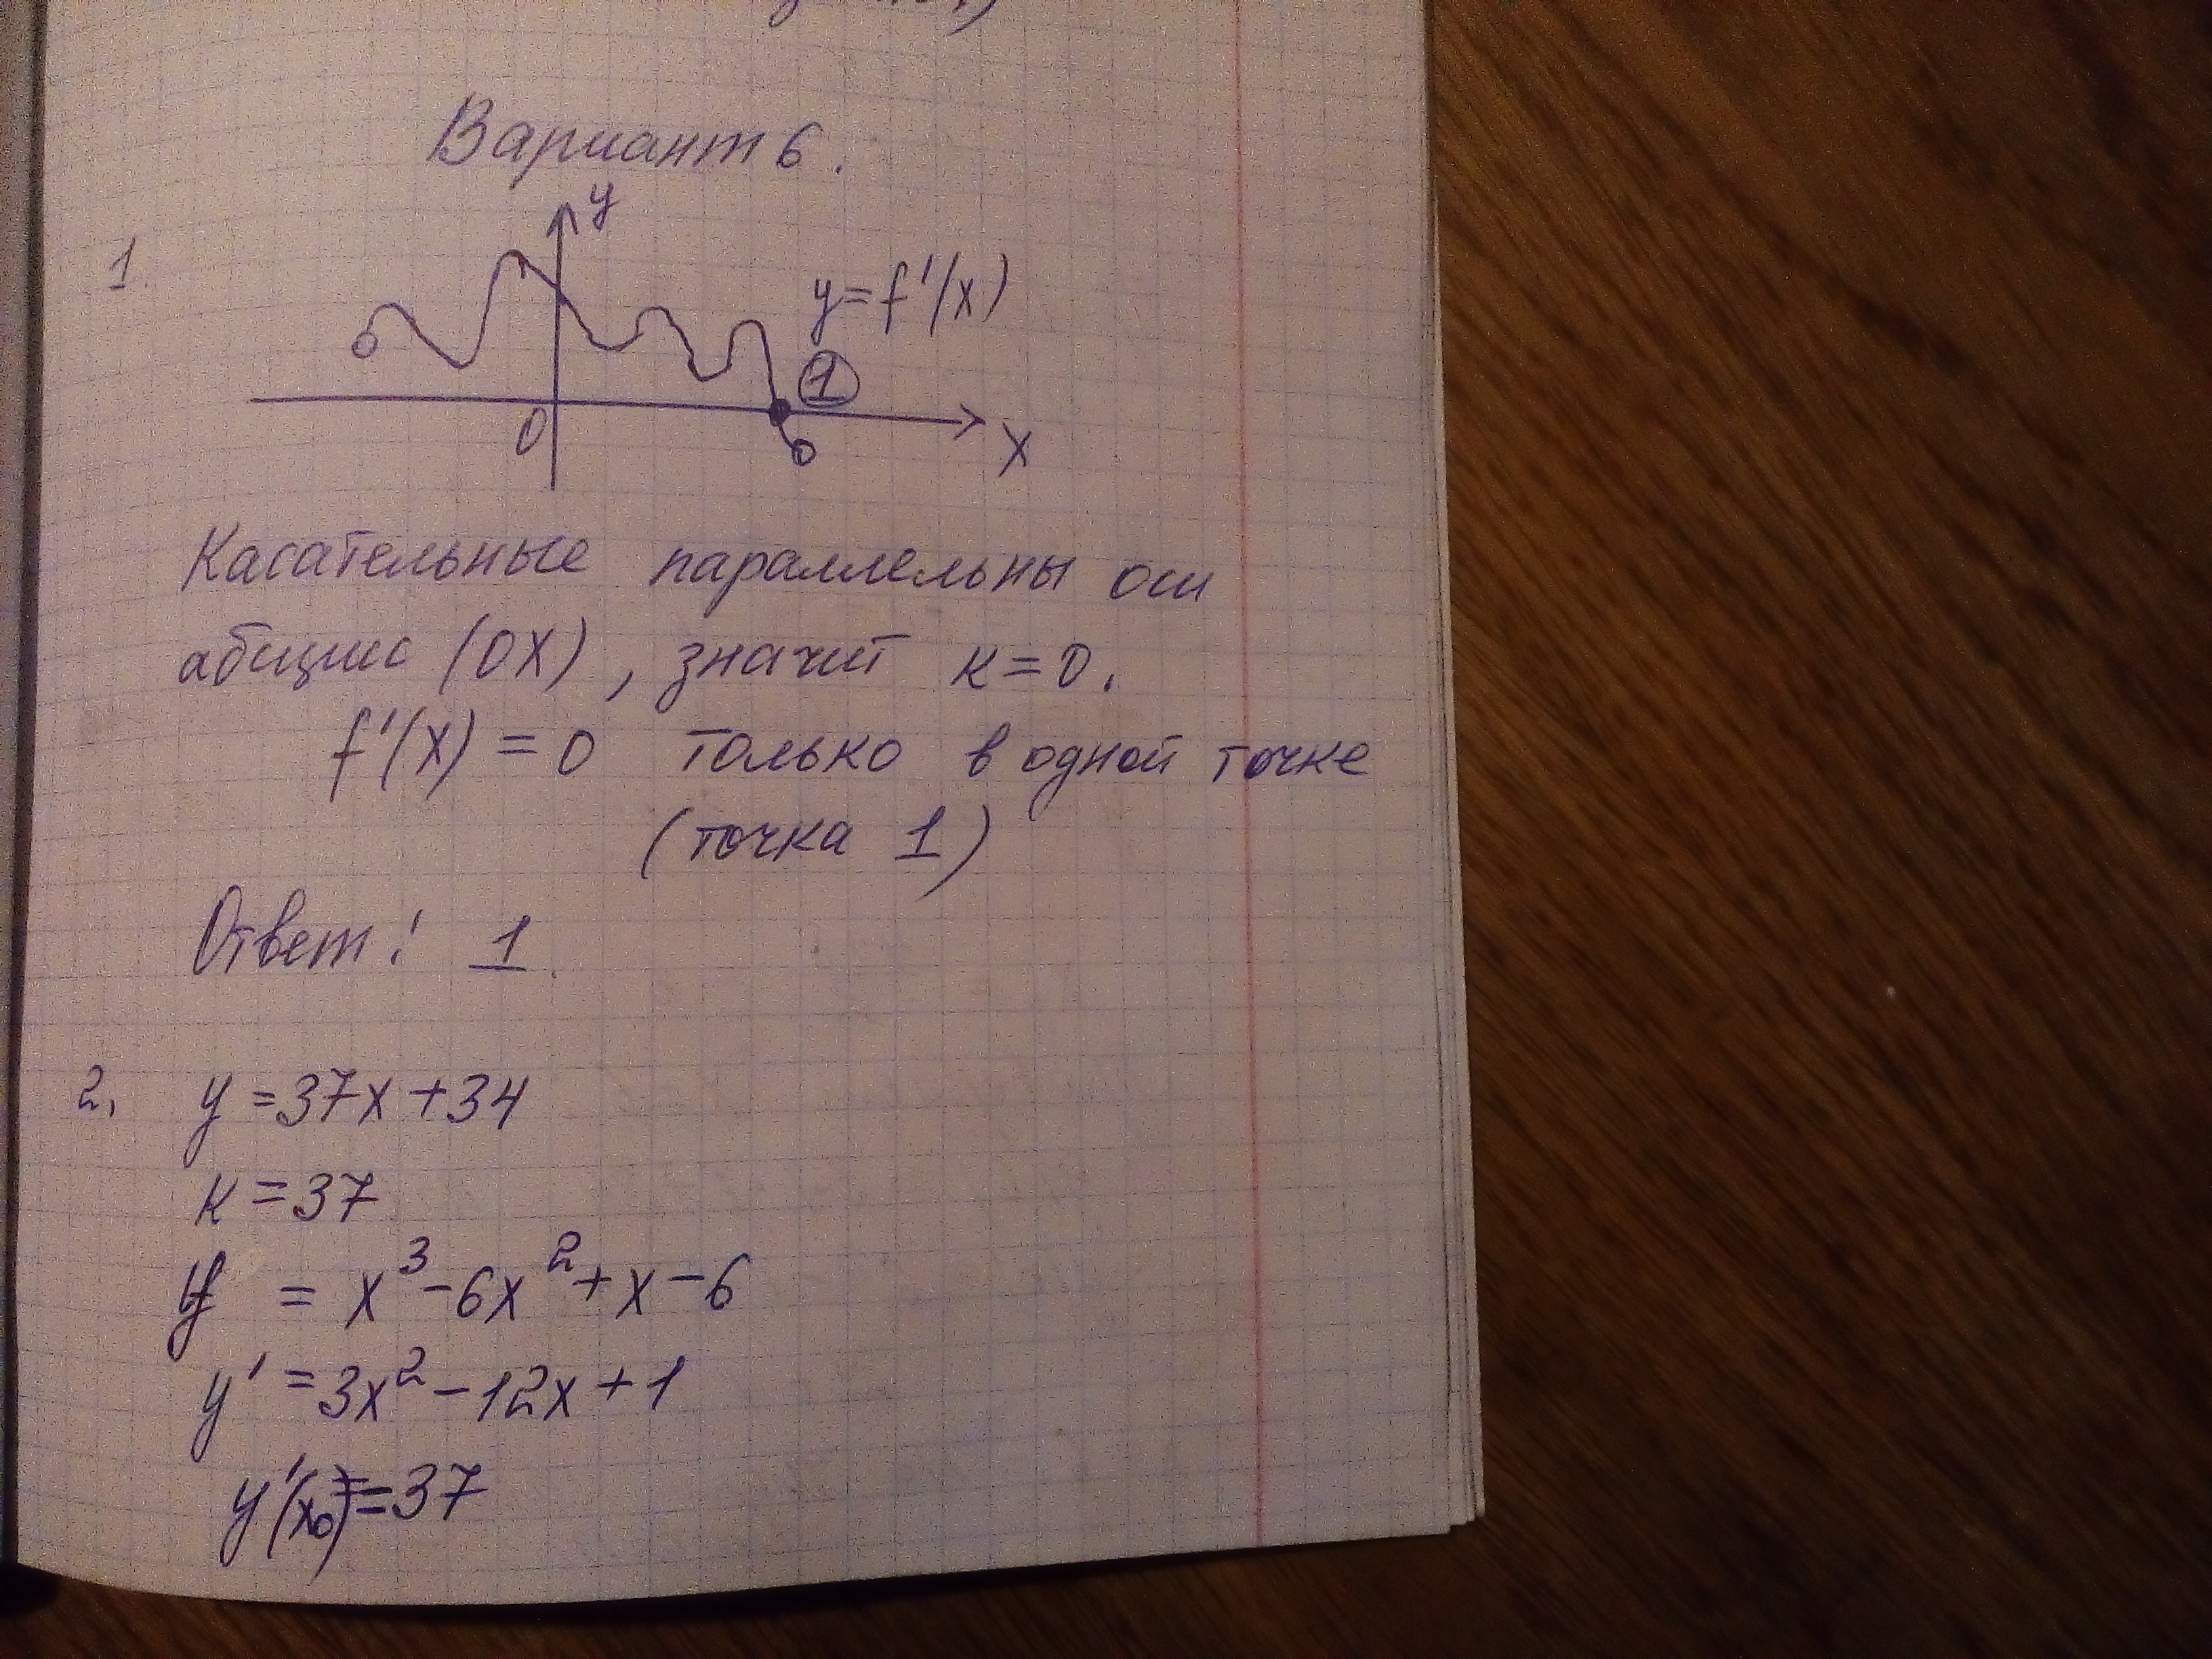 Вариант 6.
1.
y
y=f'(x)
1
0
x
Касательные параллельны оси
абсцисс (OX), значит к=0.
f'(x) = 0 только в одной точке
(точка 1)
Ответ: 1.
2. y = 37x + 34
к = 37
y = x³ - 6x² + x - 6
y' = 3x² - 12x + 1
y'(x₀) = 37